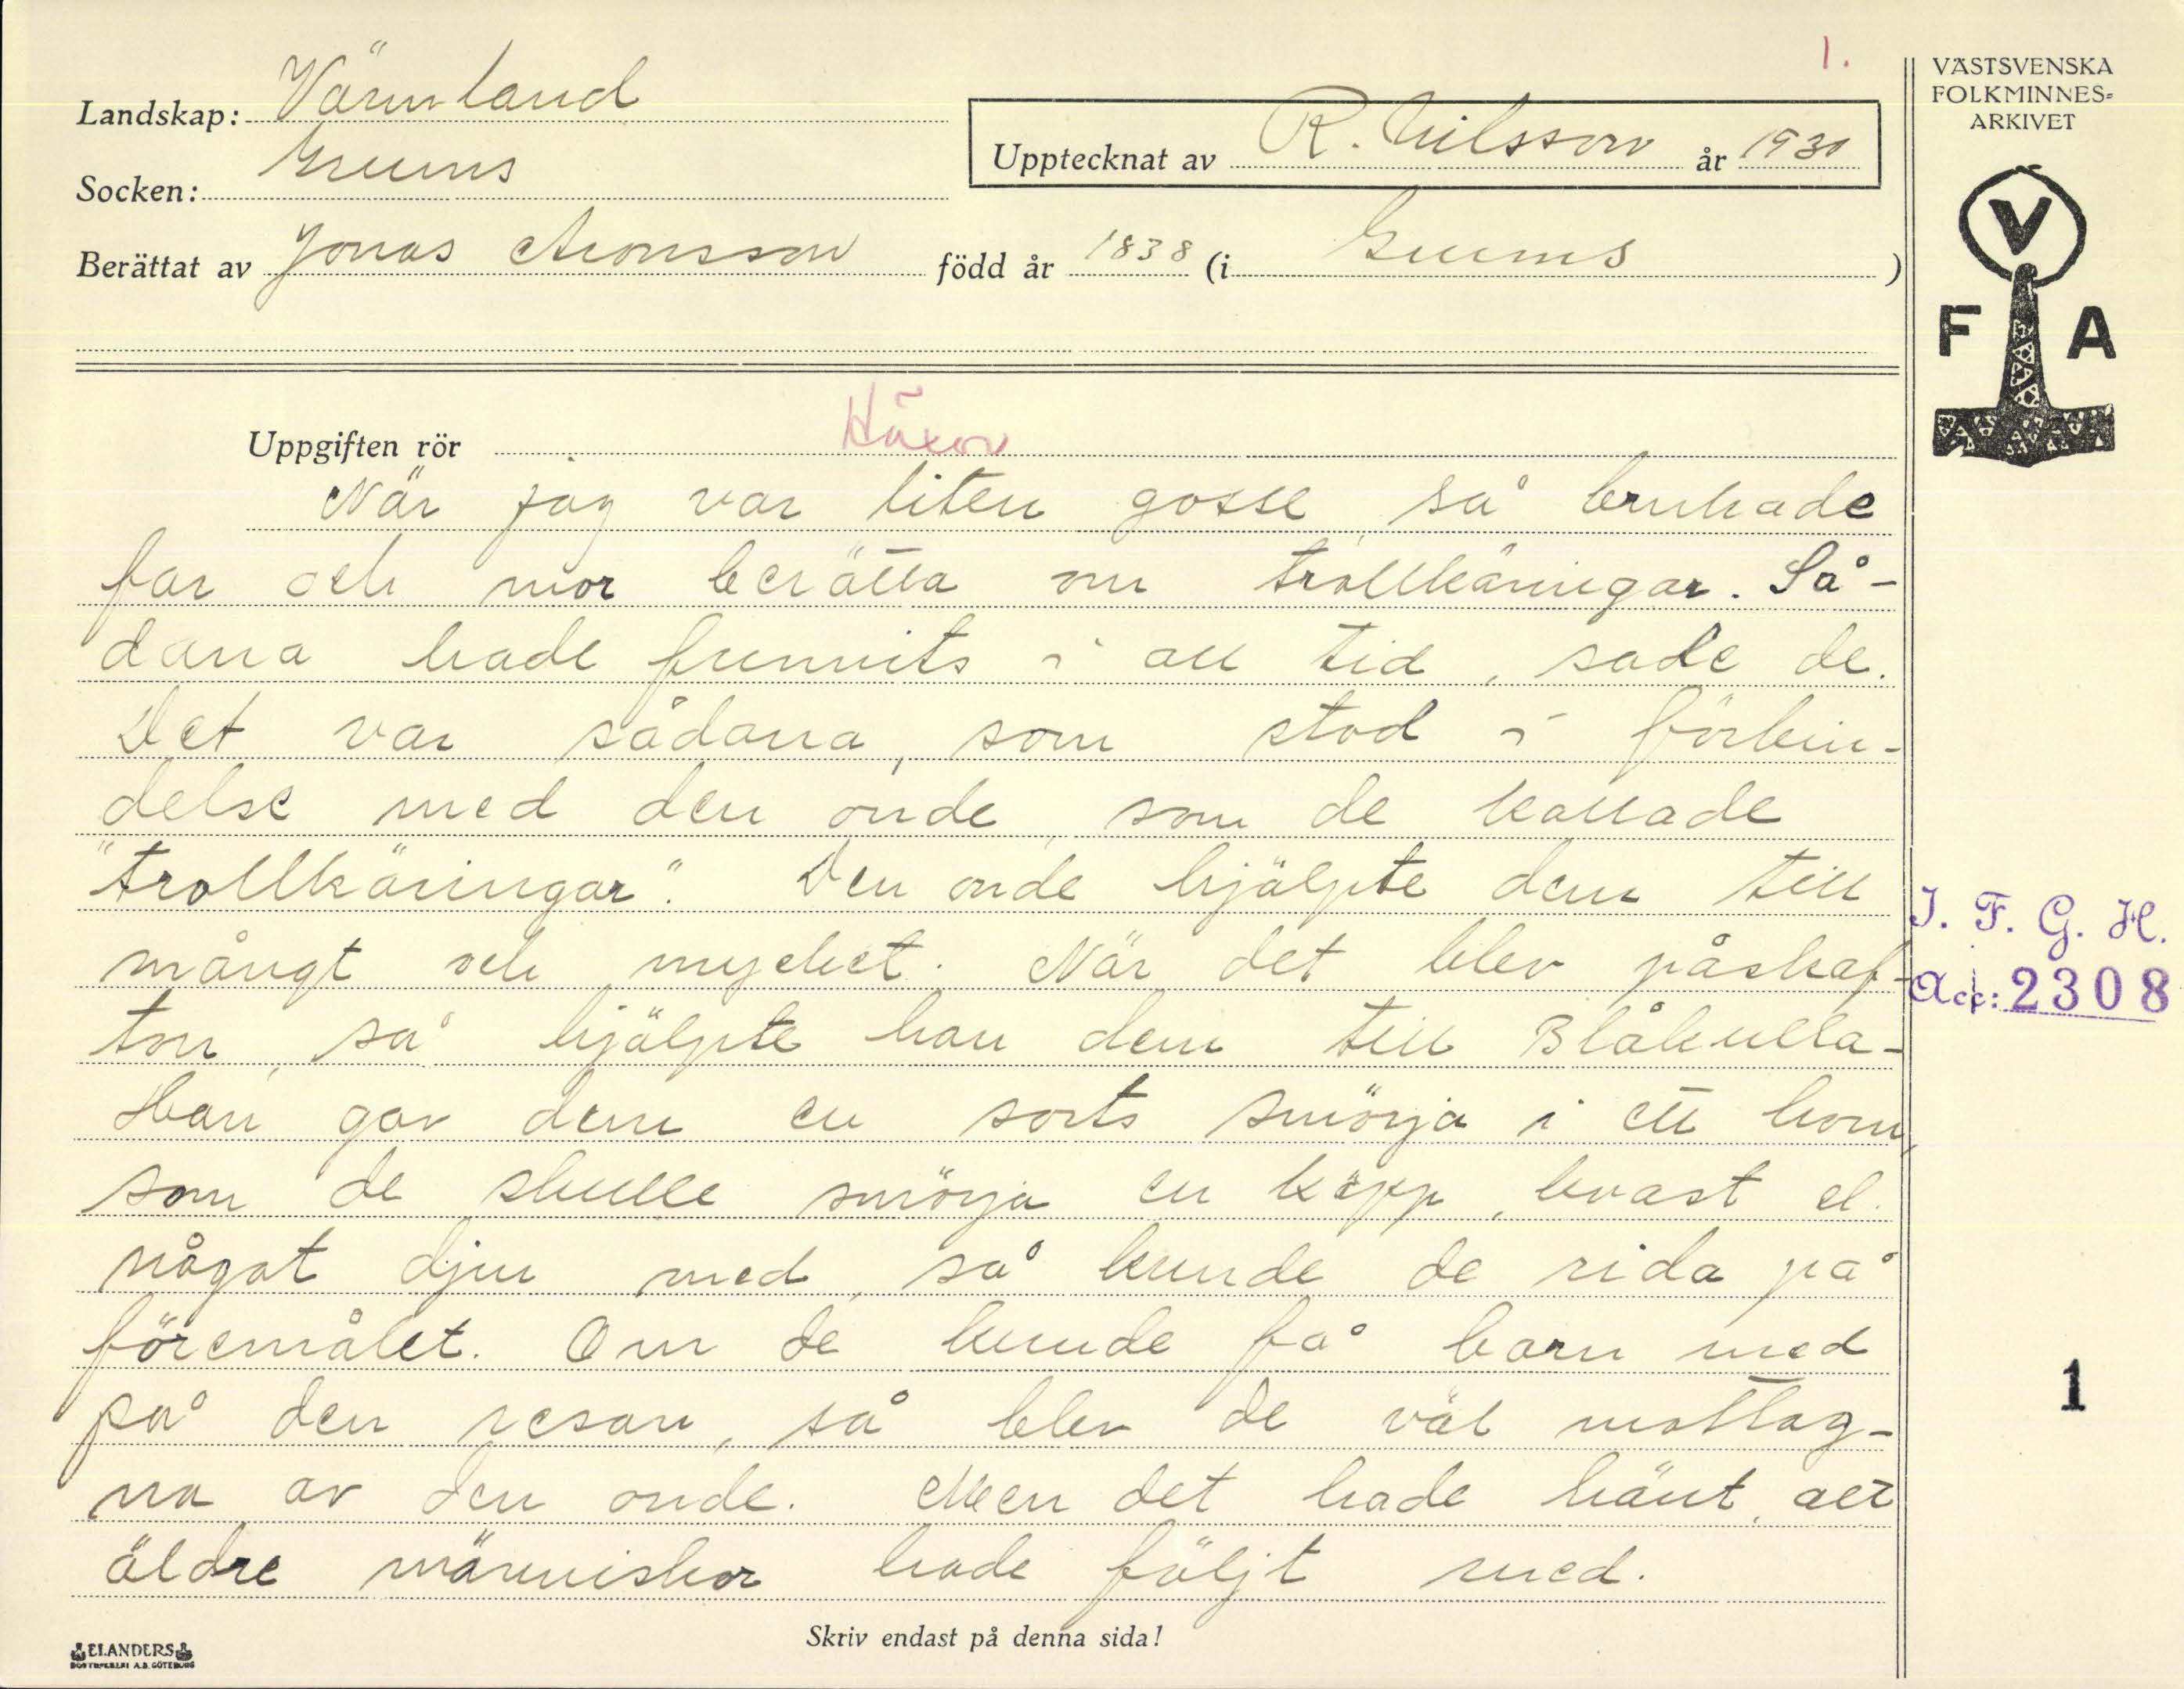 1.
Landskap: Värmland
Socken: Grums
Upptecknat av R. Nilsson år 1930
Berättat av Jonas Aronsson född år 1838 (i Grums)
VÄSTSVENSKA
FOLKMINNES-
ARKIVET
V
F A
Uppgiften rör Häxor
När jag var liten gosse så brukade
far och mor berätta om trollkäringar. Så-
dana hade funnits i all tid, sade de.
Det var sådana, som stod i förbin-
delse med den onde, som de kallade
"trollkäringar". Den onde hjälpte dem till
mångt och mycket. När det blev påskaf-
ton, så hjälpte han dem till Blåkulla-
Han gav dem en sorts smörja i ett horn,
som de skulle smörja en käpp, kvast el.
något djur med, så kunde de rida på
föremålet. Om de kunde få barn med
på den resan, så blev de väl mottag-
na av den onde. Men det hade hänt, att
äldre människor hade följt med.
I. F. G. H.
Acc: 2308
1
Skriv endast på denna sida!
ELANDERS
BOKTRYCKERI A.B. GÖTEBORG